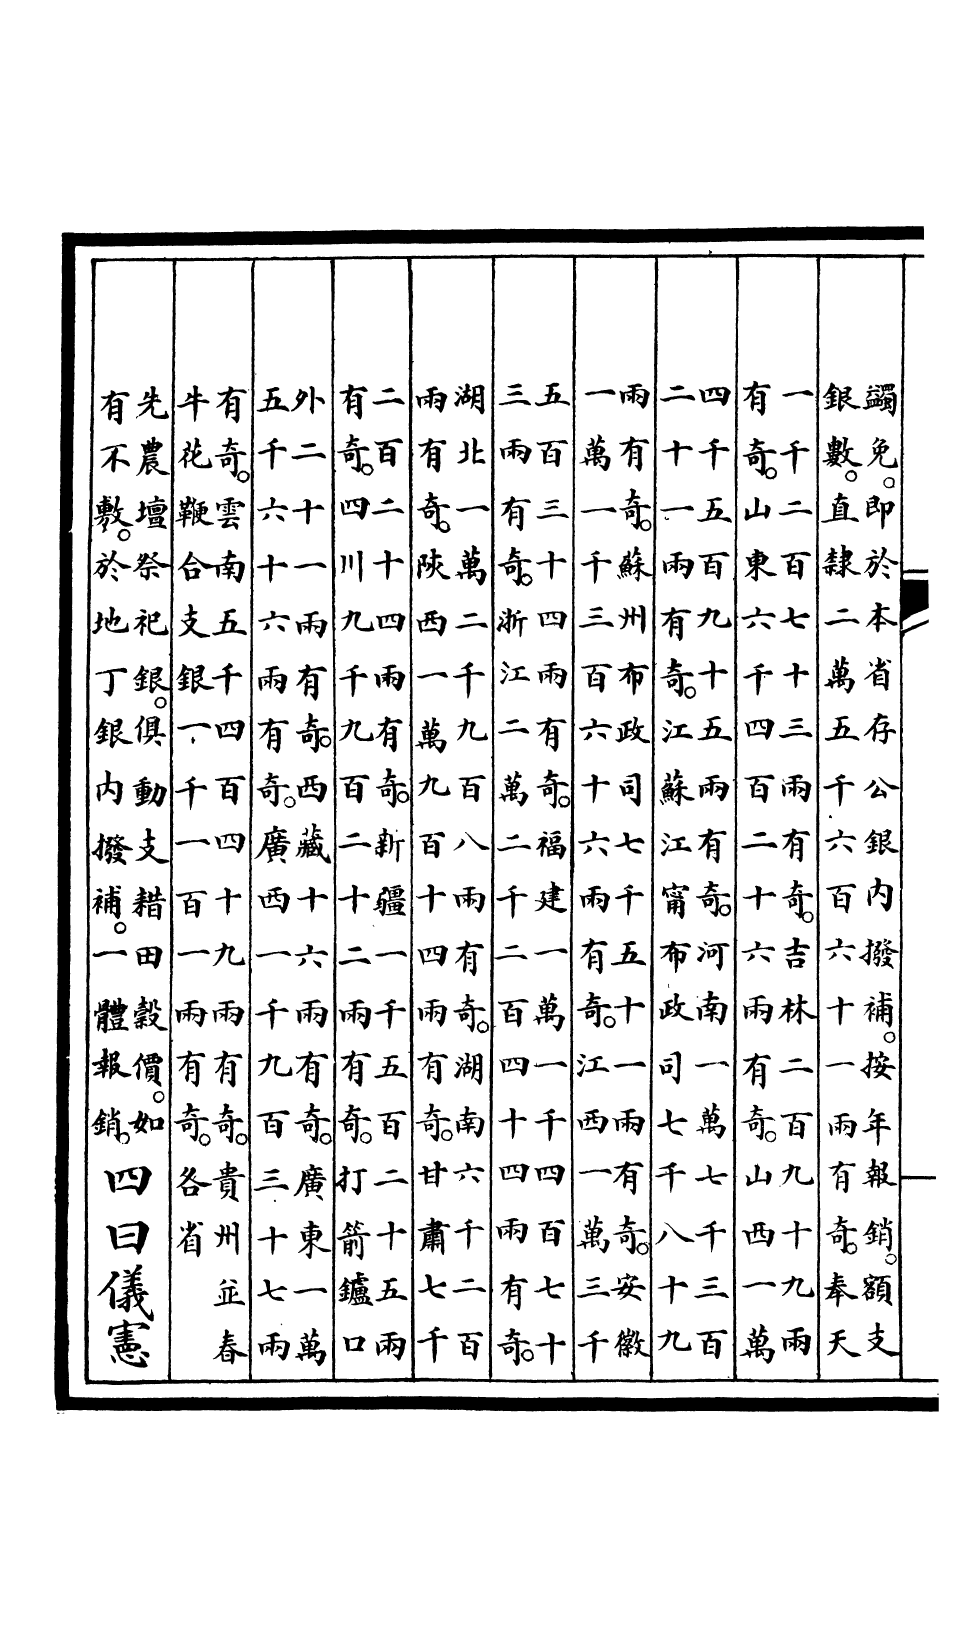 蠲免。即於本省存公銀內撥補。按年報銷。額支
銀數。直隸二萬五千六百六十一兩有奇。奉天
一千二百七十三兩有奇。吉林二百九十九兩
有奇。山東六千四百二十六兩有奇。山西一萬
四千五百九十五兩有奇。河南一萬七千三百
二十一兩有奇。江蘇江甯布政司七千八十九
兩有奇。蘇州布政司七千五十一兩有奇。安徽
一萬一千三百六十六兩有奇。江西一萬三千
五百三十四兩有奇。福建一萬一千四百七十
三兩有奇。浙江二萬二千二百四十四兩有奇。
湖北一萬二千九百八兩有奇。湖南六千二百
兩有奇。陝西一萬九百十四兩有奇。甘肅七千
二百二十四兩有奇。新疆一千五百二十五兩
有奇。四川九千九百二十二兩有奇。打箭鑪口
外二十一兩有奇。西藏十六兩有奇。廣東一萬
五千六十六兩有奇。廣西一千九百三十七兩
有奇。雲南五千四百四十九兩有奇。貴州並春
牛花鞭合支銀一千一百一兩有奇。各省
先農壇祭祀銀。俱動支耤田穀價。如
有不敷。於地丁銀內撥補。一體報銷。
四曰儀憲